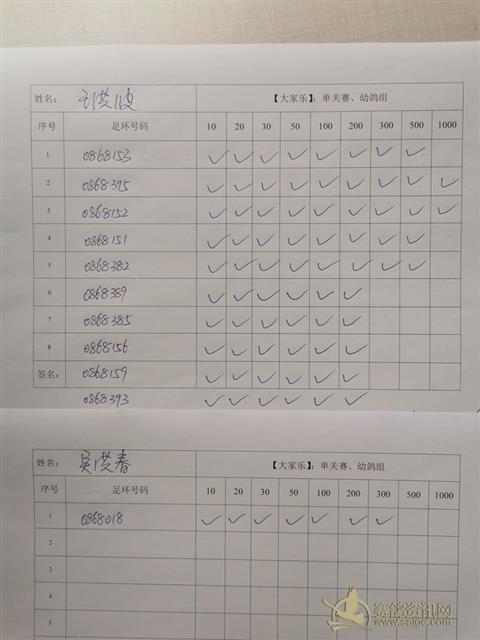 姓名： 【大家乐】：单关赛、幼鸽组
序号 足环号码 10 20 30 50 100 200 300 500 1000
1 0868153 ✓ ✓ ✓ ✓ ✓ ✓ ✓ ✓
2 0868395 ✓ ✓ ✓ ✓ ✓ ✓ ✓ ✓ ✓
3 0868152 ✓ ✓ ✓ ✓ ✓ ✓ ✓ ✓ ✓
4 0868151 ✓ ✓ ✓ ✓ ✓ ✓ ✓ ✓
5 0868382 ✓ ✓ ✓ ✓ ✓ ✓ ✓ ✓
6 0868389 ✓ ✓ ✓ ✓ ✓ ✓
7 0868385 ✓ ✓ ✓ ✓ ✓ ✓
8 0868156 ✓ ✓ ✓ ✓ ✓ ✓
签名： 0868159 ✓ ✓ ✓ ✓ ✓ ✓
0868393 ✓ ✓ ✓ ✓ ✓ ✓
姓名： 吴洪春 【大家乐】：单关赛、幼鸽组
序号 足环号码 10 20 30 50 100 200 300 500 1000
1 0868018 ✓ ✓ ✓ ✓ ✓ ✓ ✓
2
3
4
5
赛鸽资讯网
www.saige.com